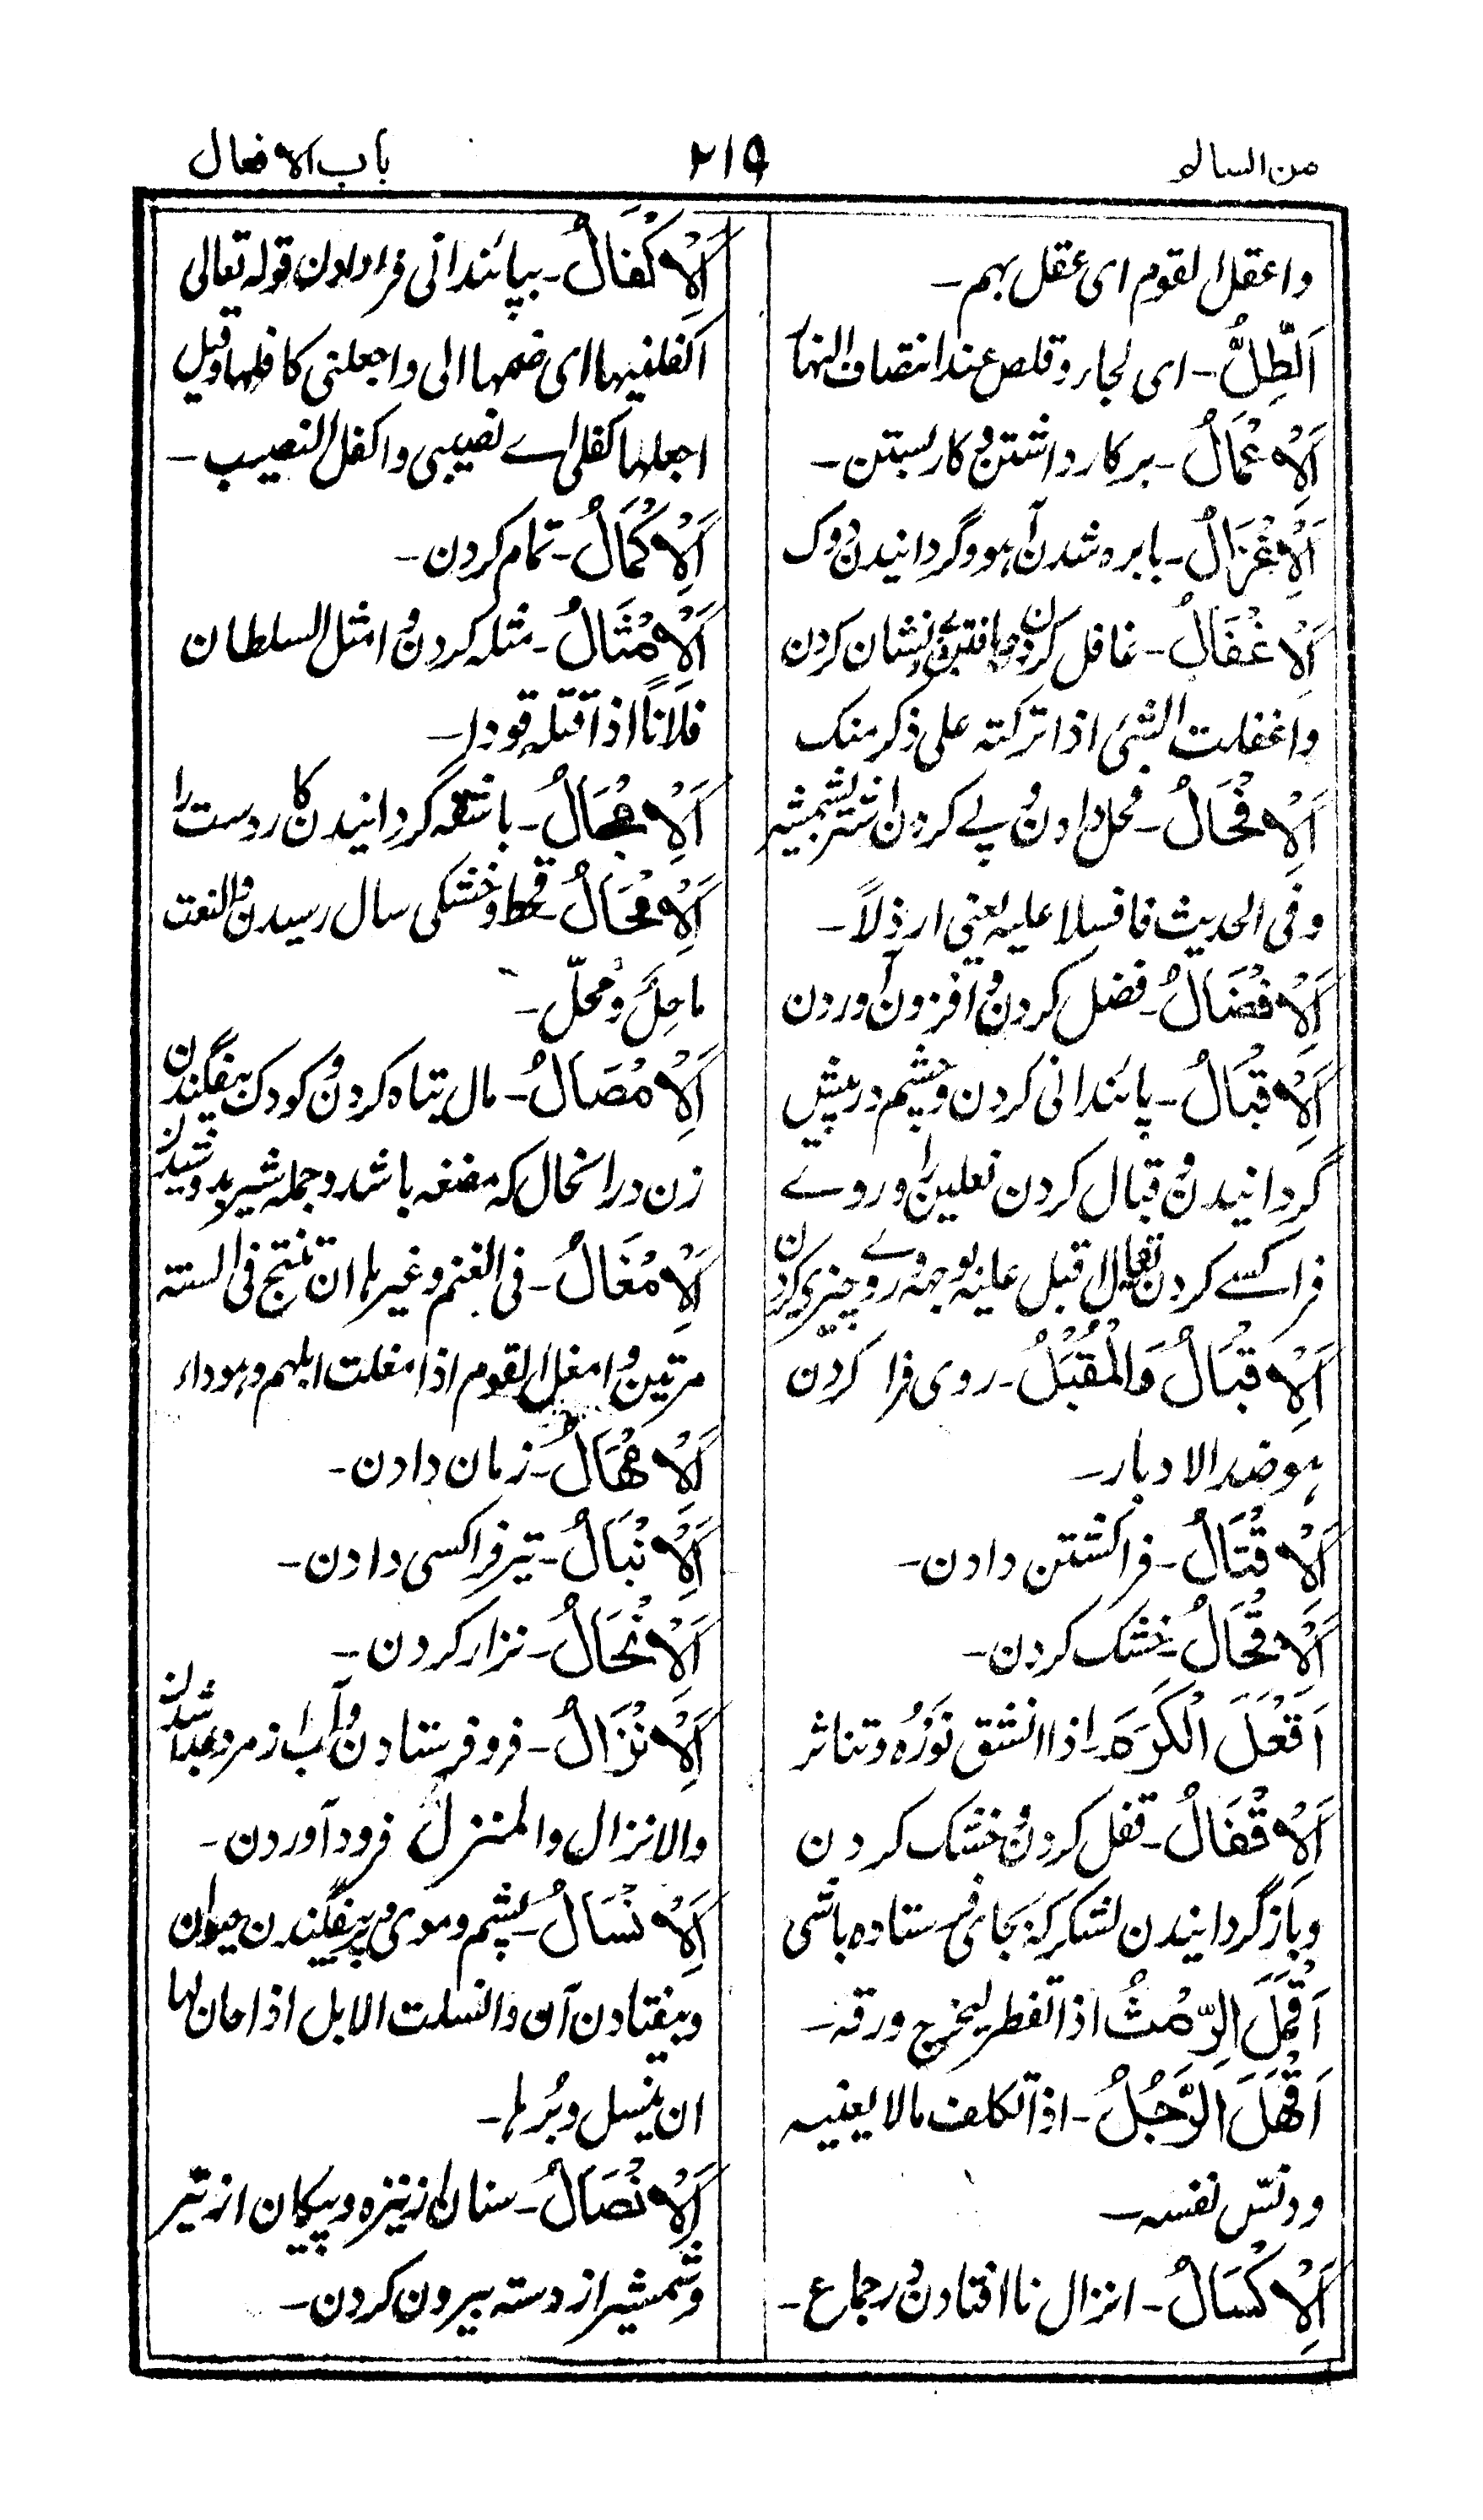 من السالم
٢١٩
باب الافعال
واعقل القوم ای عقل بهم۔
اَلظِّلُّ۔ ای لجار وقلص عند انتصاف النهار
اَلْاِعْمَالُ۔ بر کار داشتن و کار بستن۔
اَلْاِغْزَالُ۔ با بره شدن آهو و گردانیدن دوک
اَلْاِغْفَالُ۔ غافل کردن و یافتن و بے نشان کردن
واغفلت الشئ اذا ترکته علی ذکر منک
اَلْاِفْحَالُ۔ فحل دادن و پے کردن اشتر بشمشیر
وفی الحدیث فافسلا علیه یعنی ارذلاً۔
اَلْاِفْضَالُ۔ فضل کردن و افزون آوردن
اَلْاِقْبَالُ۔ پائندانی کردن و چشم در پیش
گردانیدن و قبال کردن نعلین را و روے
فرا کسے کردن یقال اقبل علیه بوجهه و روے چیزی کردن
اَلْاِقْبَالُ وَالْمُقْبَلُ۔ روی فرا کردن
هو ضد الادبار۔
اَلْاِقْتَالُ۔ فرا کشتن دادن۔
اَلْاِقْحَالُ۔ خشک کردن۔
اَقْعَلَ الْکَرَمُ۔ اذا انشق نَوْرُه وتناثر
اَلْاِقْفَالُ۔ قفل کردن و خشک کردن
و باز گردانیدن لشکر که بجای فرستاده باشی
اَقْمَلَ الرِّمْثُ اذا تفطر لیخرج ورقه۔
اَقْهَلَ الرَّجُلُ۔ اذا تکلف مالا یعنیه
ودنّس نفسه۔
اَلْاِکْسَالُ۔ انزال نا افتادن در جماع۔
اَلْاِکْفَالُ۔ بپائندانی فرا دادن قوله تعالی
اکفلنیها ای ضمها الی واجعلنی کافلها وقیل
اجعلها کفلی اے نصیبی والکفل النصیب۔
اَلْاِکْمَالُ۔ تمام کردن۔
اَلْاِمْثَالُ۔ مثله کردن و امثل السلطان
فلاناً اذا قتله قودا۔
اَلْاِمْجَالُ۔ با شقه گردانیدن کار دست را
اَلْاِمْحَالُ۔ قحط و خشکی سال رسیدن والنعت
ماحِلٌ ومُمحلٌ۔
اَلْاِمْصَالُ۔ مال تباه کردن و کودک بیفگندن
زن در انحال که مضغه باشد و جمله شیر بدوشیدن
اَلْاِمْغَالُ۔ فی الغنم وغیرها ان تنتج فی السنة
مرتین و امغل القوم اذا مغلت ابلهم و هو داء
اَلْاِمْهَالُ۔ زمان دادن۔
اَلْاِنْبَالُ۔ تیر فرا کسی دادن۔
اَلْاِنْحَالُ۔ نزار کردن۔
اَلْاِنْزَالُ۔ فرو فرستادن و آب از مرد جدا شدن
والانزال والمنزل فرود آوردن۔
اَلْاِنْسَالُ۔ پشم و موی و پر بیفگندن حیوان
و بیفتادن آن وانسلت الابل اذا حان لها
ان ینسل وبُرها۔
اَلْاِنْصَالُ۔ سنان از نیزه و پیکان از تیر
و شمشیر از دسته بیرون کردن۔